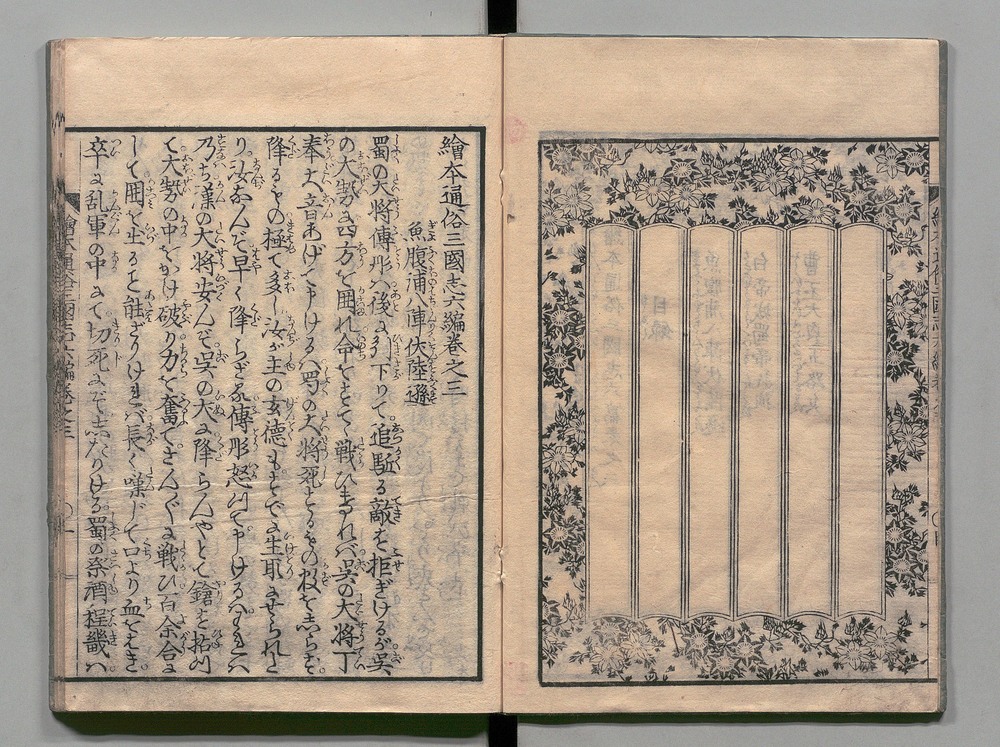 繪本通俗三國志六編卷之三
魚腹浦八陣伏陸遜
蜀の大将傅彤ハ後に引下りて追駈る敵を拒ぎけるが呉
の大勢に四方を囲れ命をすてゝ戦ひければ呉の大将丁
奉大音あげて申けるハ蜀の大将死するもの数をしらず
降るもの極て多し汝が主の玄徳もすでに生取せられた
り汝なんぞ早く降らざる傅彤怒つて申けるハわれハ
乃ち漢の大将安んぞ呉の犬に降らんやとて鎗を拈り
て大勢の中をかけ破り力を奮てさんざんに戦ひ百余合に
して囲を出ること能ざりけれバ長く嘆じて口より血をはき
卒に乱軍の中にて切死にぞしたりける蜀の祭酒程畿ハ
繪本通俗三國志六編卷之三